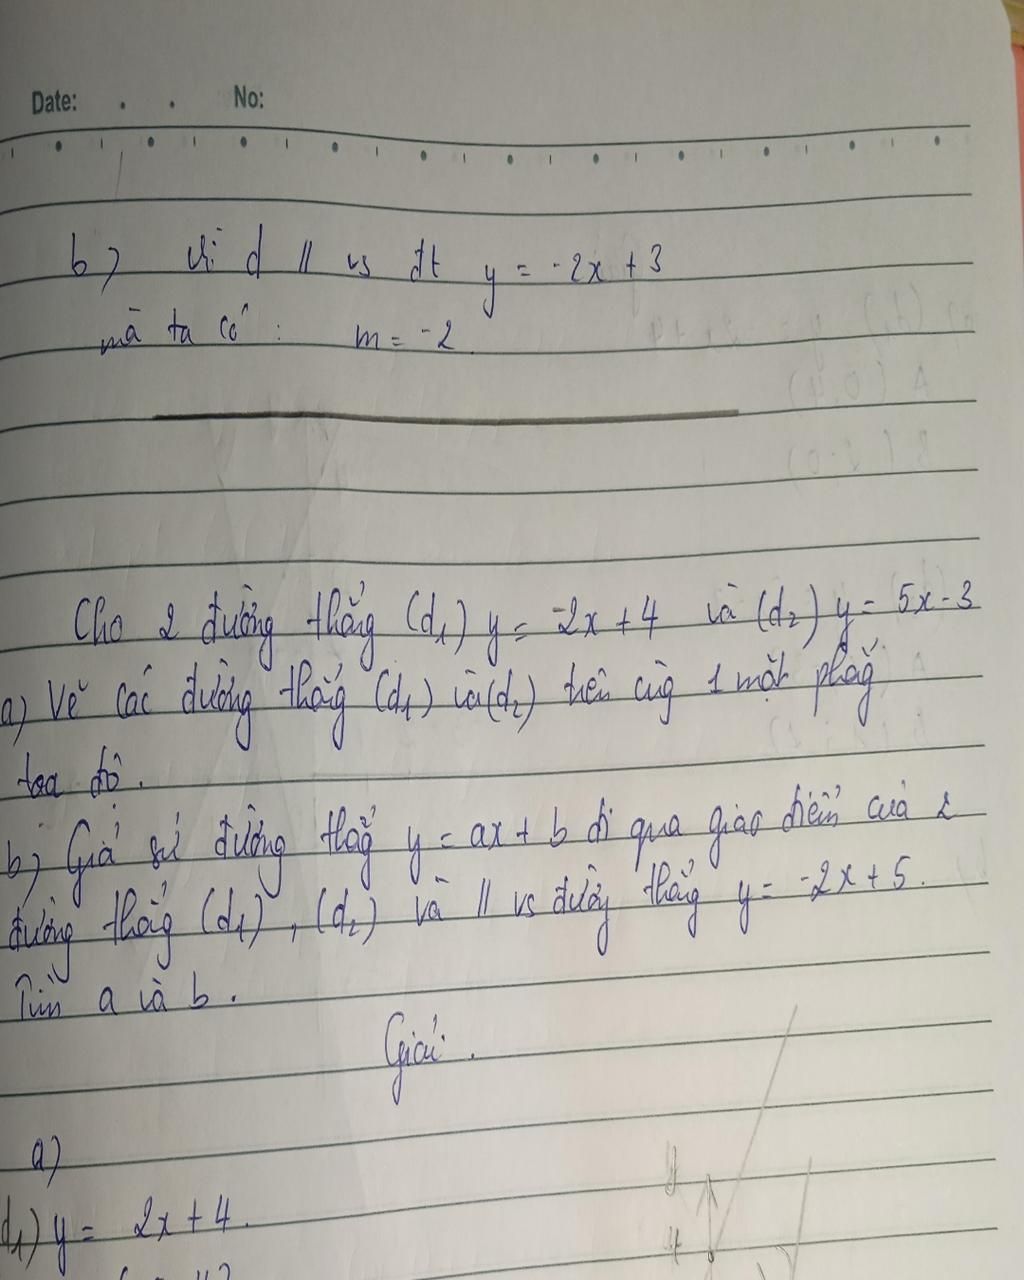 Date: . . No:
b) Vì d // vs đt y = -2x + 3
mà ta có : m = -2
Cho 2 đường thẳng (d1) y = -2x + 4 và (d2) y = 5x - 3
a) Vẽ các đường thẳg (d1) và (d2) trên cùg 1 mặt phẳg
tọa độ.
b) Giả sử đường thẳg y = ax + b đi qua giao điểm của 2
đường thẳg (d1), (d2) và // vs đườg thẳg y = -2x + 5.
Tìm a và b.
Giải.
a)
d1) y = 2x + 4.
y
4